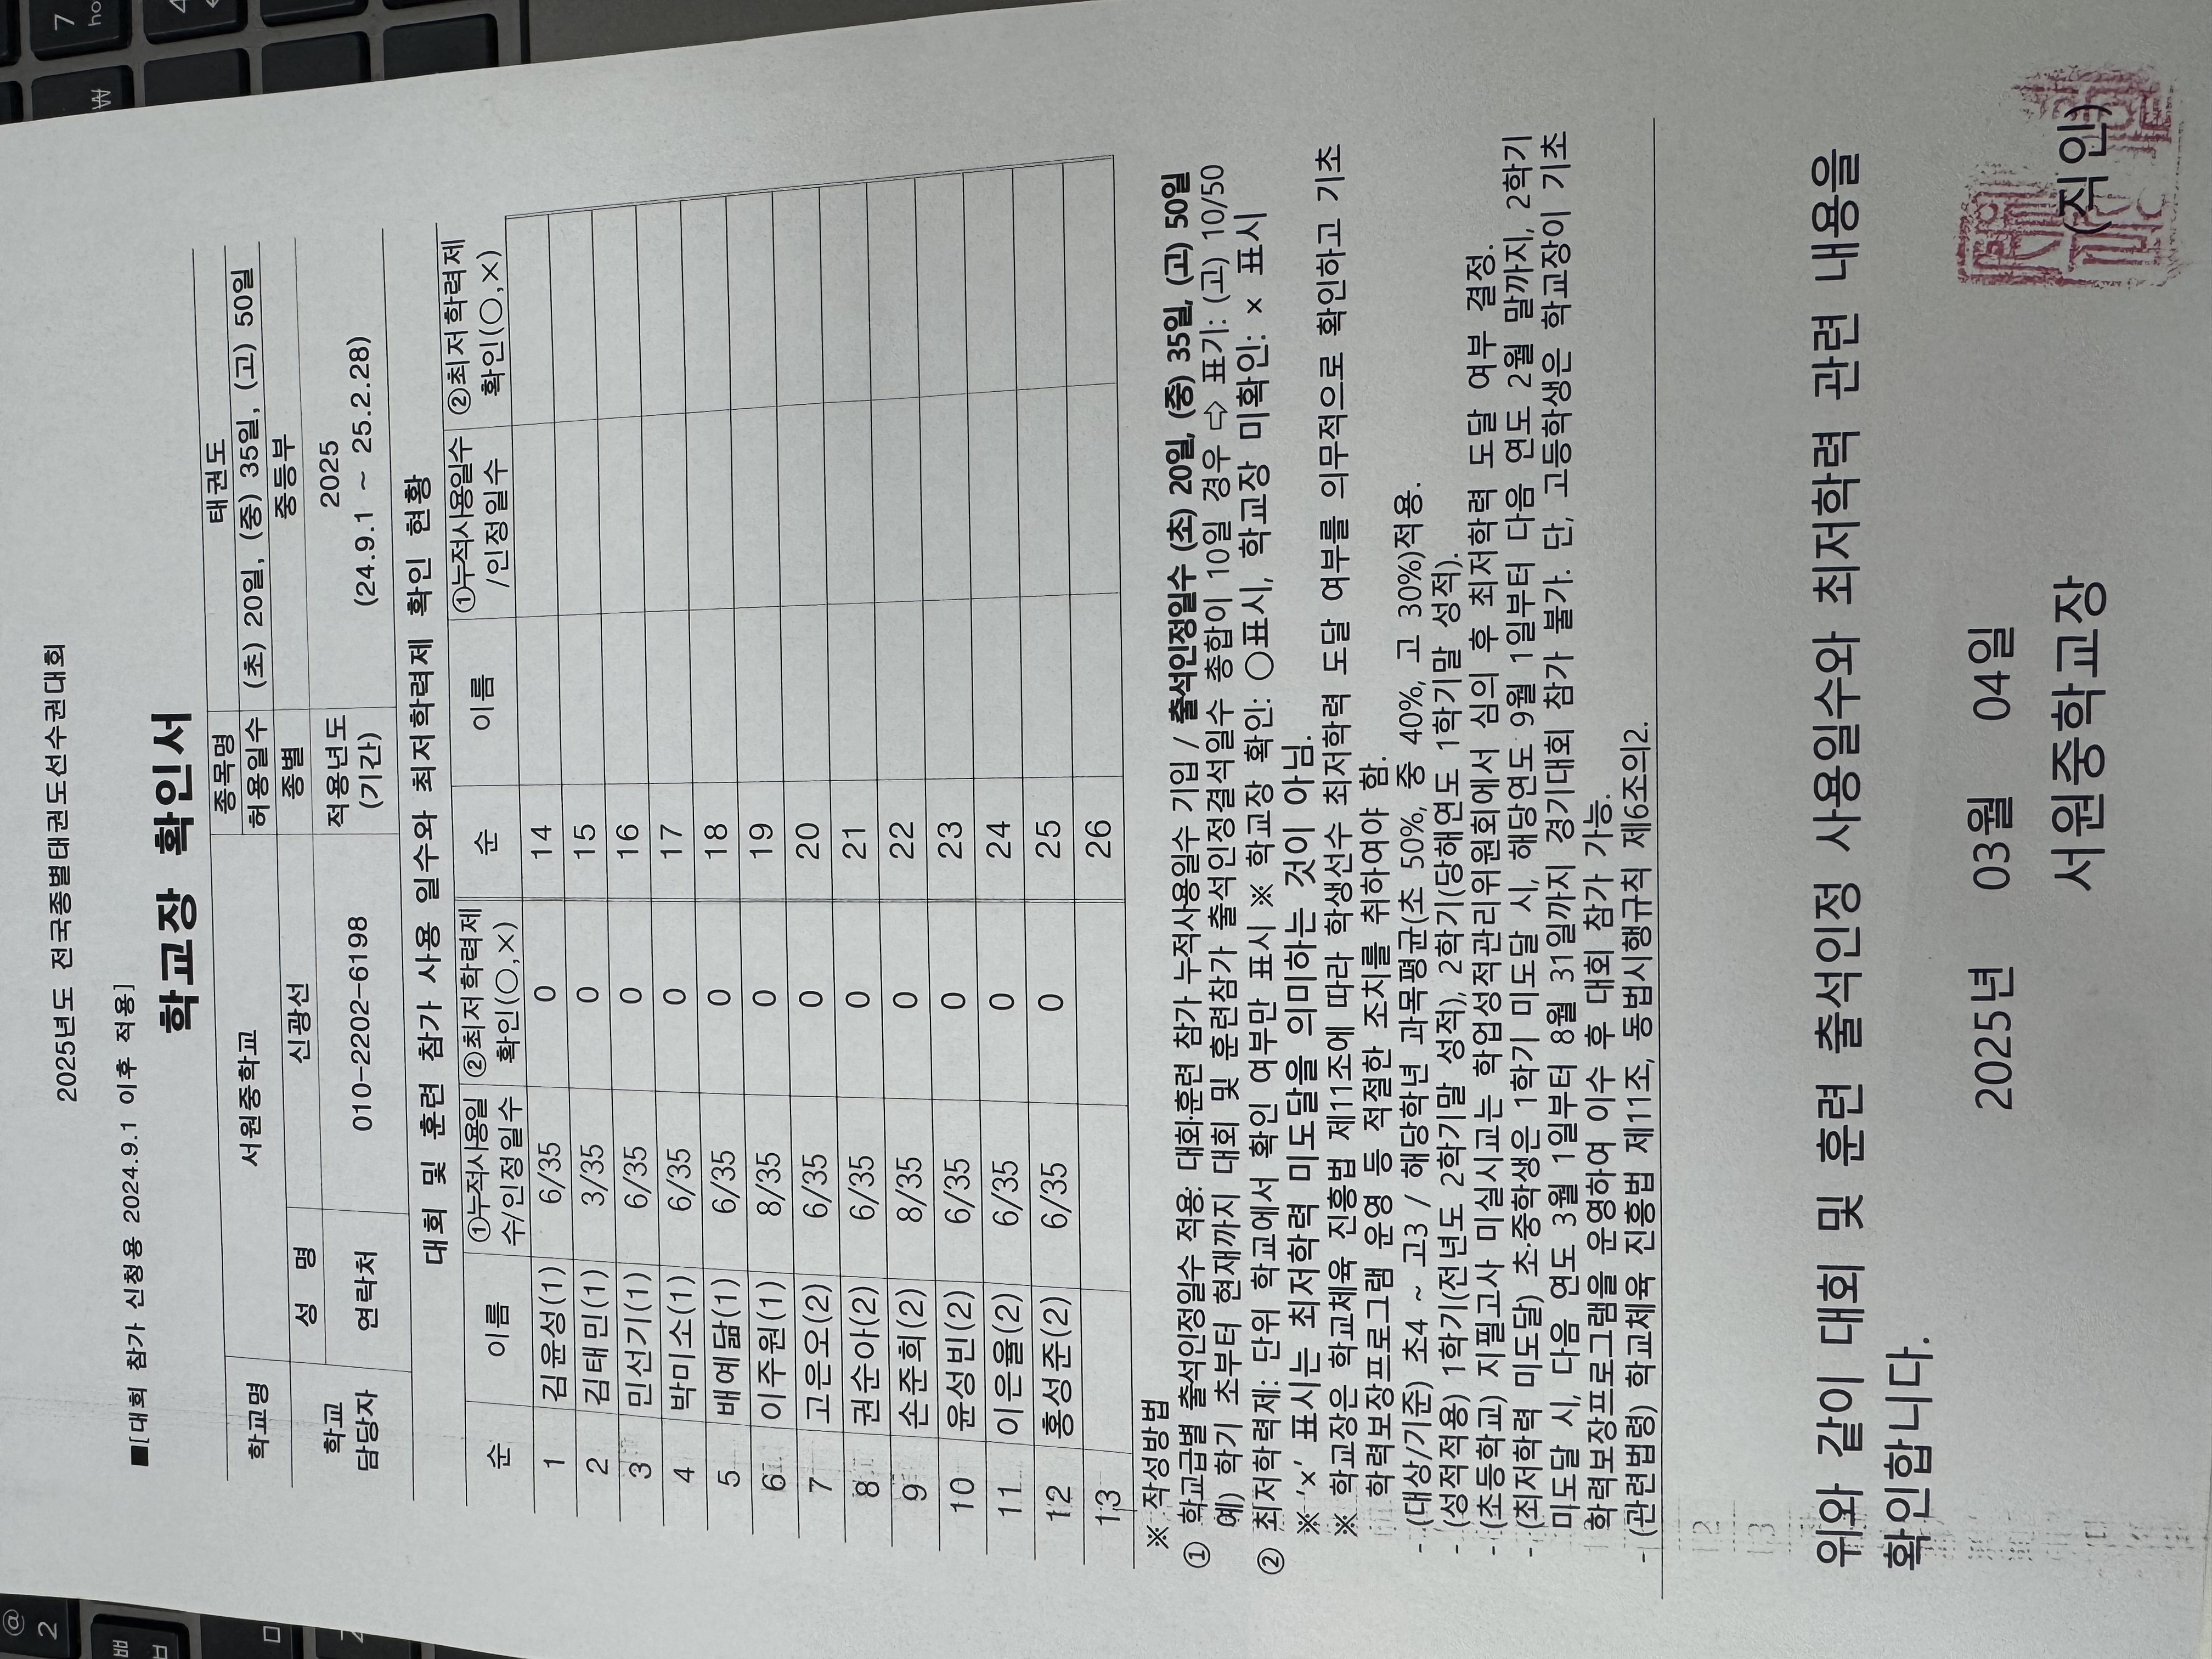 2025년도 전국종별태권도선수권대회
■[대회 참가 신청용 2024.9.1 이후 적용]
학교장 확인서
학교명 서원중학교 종목명 태권도
허용일수 (초) 20일, (중) 35일, (고) 50일
학교 담당자 성 명 신광선 종별 중등부
연락처 010-2202-6198 적용년도 (기간) 2025 (24.9.1 ~ 25.2.28)
대회 및 훈련 참가 사용 일수와 최저학력제 확인 현황
순 이름 ①누적사용일수/인정일수 ②최저학력제 확인(○,×) 순 이름 ①누적사용일수/인정일수 ②최저학력제 확인(○,×)
1 김윤성(1) 6/35 0 14
2 김태민(1) 3/35 0 15
3 민선기(1) 6/35 0 16
4 박미소(1) 6/35 0 17
5 배예닮(1) 6/35 0 18
6 이주원(1) 8/35 0 19
7 고은오(2) 6/35 0 20
8 권순아(2) 6/35 0 21
9 손준희(2) 8/35 0 22
10 윤성빈(2) 6/35 0 23
11 이은율(2) 6/35 0 24
12 홍성준(2) 6/35 0 25
13 26
※ 작성방법
① 학교급별 출석인정일수 적용: 대회·훈련 참가 누적사용일수 기입 / 출석인정일수 (초) 20일, (중) 35일, (고) 50일
예) 학기 초부터 현재까지 대회 및 훈련참가 출석인정결석일수 총합이 10일 경우 ⇨ 표기: (고) 10/50
② 최저학력제: 단위 학교에서 확인 여부만 표시 ※ 학교장 확인: ○표시, 학교장 미확인: × 표시
※ '×' 표시는 최저학력 미도달을 의미하는 것이 아님.
※ 학교장은 학교체육 진흥법 제11조에 따라 학생선수 최저학력 도달 여부를 의무적으로 확인하고 기초
학력보장프로그램 운영 등 적절한 조치를 취하여야 함.
- (대상/기준) 초4 ~ 고3 / 해당학년 과목평균(초 50%, 중 40%, 고 30%)적용.
- (성적적용) 1학기(전년도 2학기말 성적), 2학기(당해연도 1학기말 성적).
- (초등학교) 지필고사 미실시교는 학업성적관리위원회에서 심의 후 최저학력 도달 여부 결정.
- (최저학력 미도달) 초·중학생은 1학기 미도달 시, 해당연도 9월 1일부터 다음 연도 2월 말까지, 2학기
미도달 시, 다음 연도 3월 1일부터 8월 31일까지 경기대회 참가 불가. 단, 고등학생은 학교장이 기초
학력보장프로그램을 운영하여 이수 후 대회 참가 가능.
- (관련법령) 학교체육 진흥법 제11조, 동법시행규칙 제6조의2.
위와 같이 대회 및 훈련 출석인정 사용일수와 최저학력 관련 내용을
확인합니다.
2025년 03월 04일
서원중학교장 (직인)